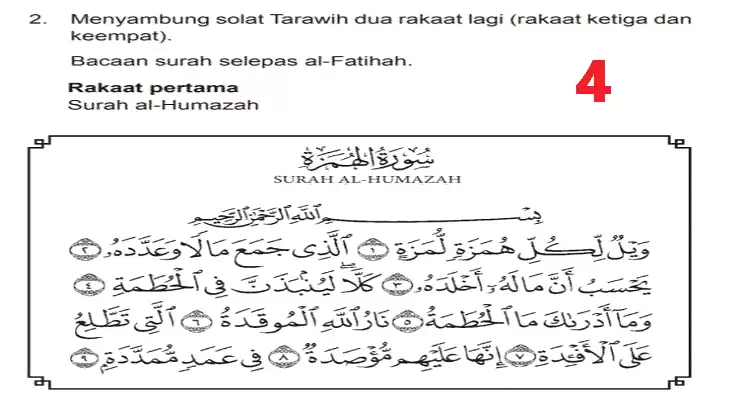 2. Menyambung solat Tarawih dua rakaat lagi (rakaat ketiga dan
keempat).
Bacaan surah selepas al-Fatihah.
4
Rakaat pertama
Surah al-Humazah
سُورَةُ الهُمَزَةِ
SURAH AL-HUMAZAH
بِسْمِ اللَّهِ الرَّحْمَٰنِ الرَّحِيمِ
وَيْلٌ لِّكُلِّ هُمَزَةٍ لُّمَزَةٍ ١ الَّذِى جَمَعَ مَالًا وَعَدَّدَهُۥ ٢
يَحْسَبُ أَنَّ مَالَهُۥٓ أَخْلَدَهُۥ ٣ كَلَّا ۖ لَيُنۢبَذَنَّ فِى الْحُطَمَةِ ٤
وَمَآ أَدْرَىٰكَ مَا الْحُطَمَةُ ٥ نَارُ اللَّهِ الْمُوقَدَةُ ٦ الَّتِى تَطَّلِعُ
عَلَى الْأَفْـِٔدَةِ ٧ إِنَّهَا عَلَيْهِم مُّؤْصَدَةٌ ٨ فِى عَمَدٍ مُّمَدَّدَةٍۭ ٩